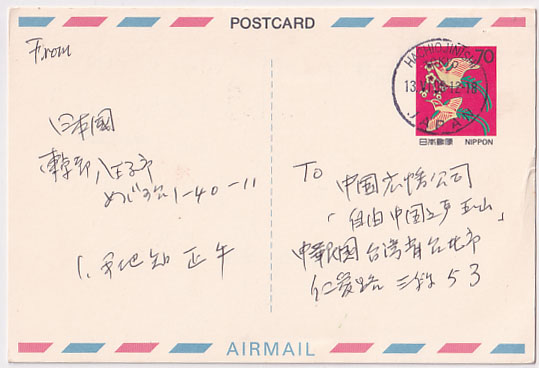 POSTCARD
From
日本国
東京都 八王子市
めじろ台1-40-11
正午
70
HACHIOJINISHI
TOKYO
13.VI.
12-18
JAPAN
日本郵便 NIPPON
To
中国広播公司
「自由中国之声
中華民国台湾省台北市
仁愛路 三段 53
AIRMAIL